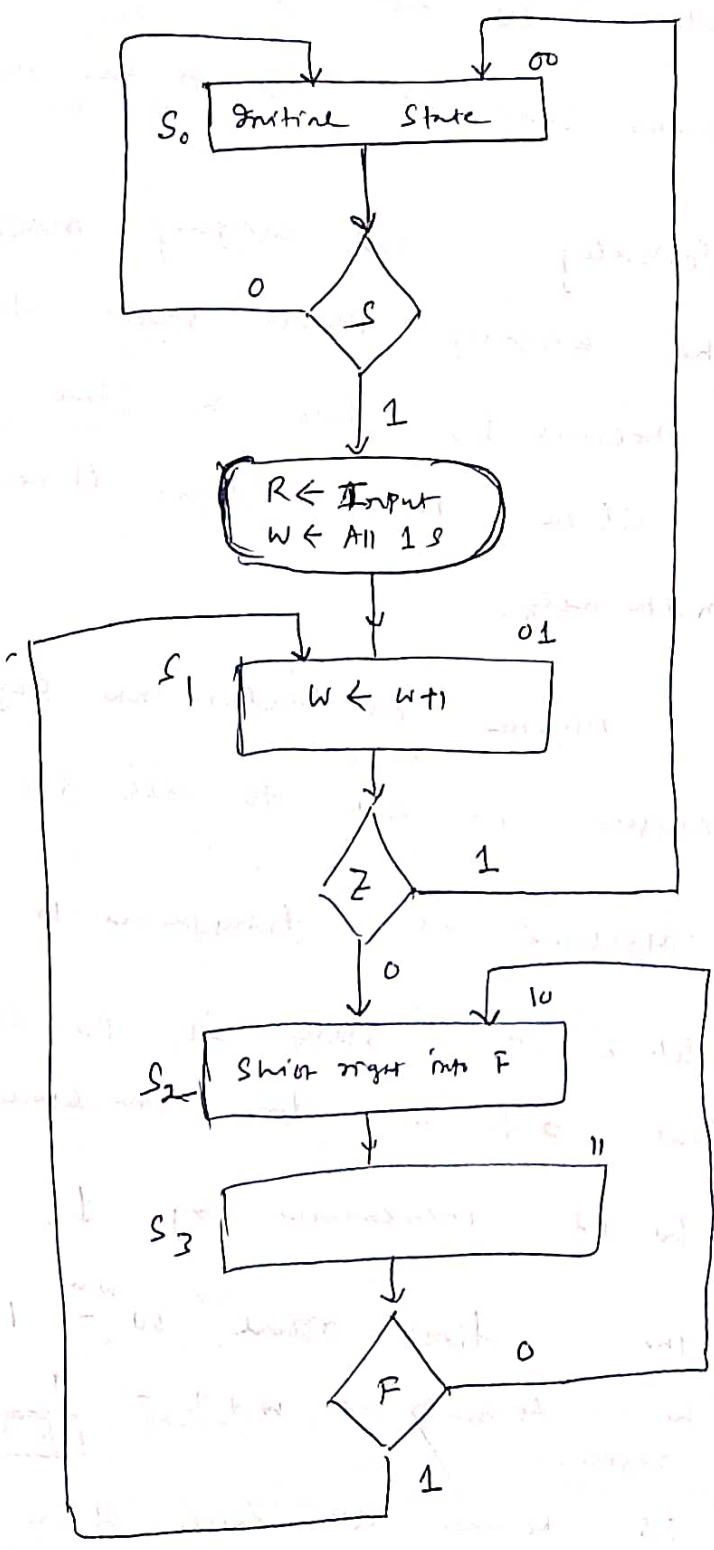 00
S₀ Initial State
0
S
1
R ← Input
W ← All 1 s
01
S₁ W ← W+1
Z
1
0
10
S₂ Shift right into F
11
S₃
F
0
1